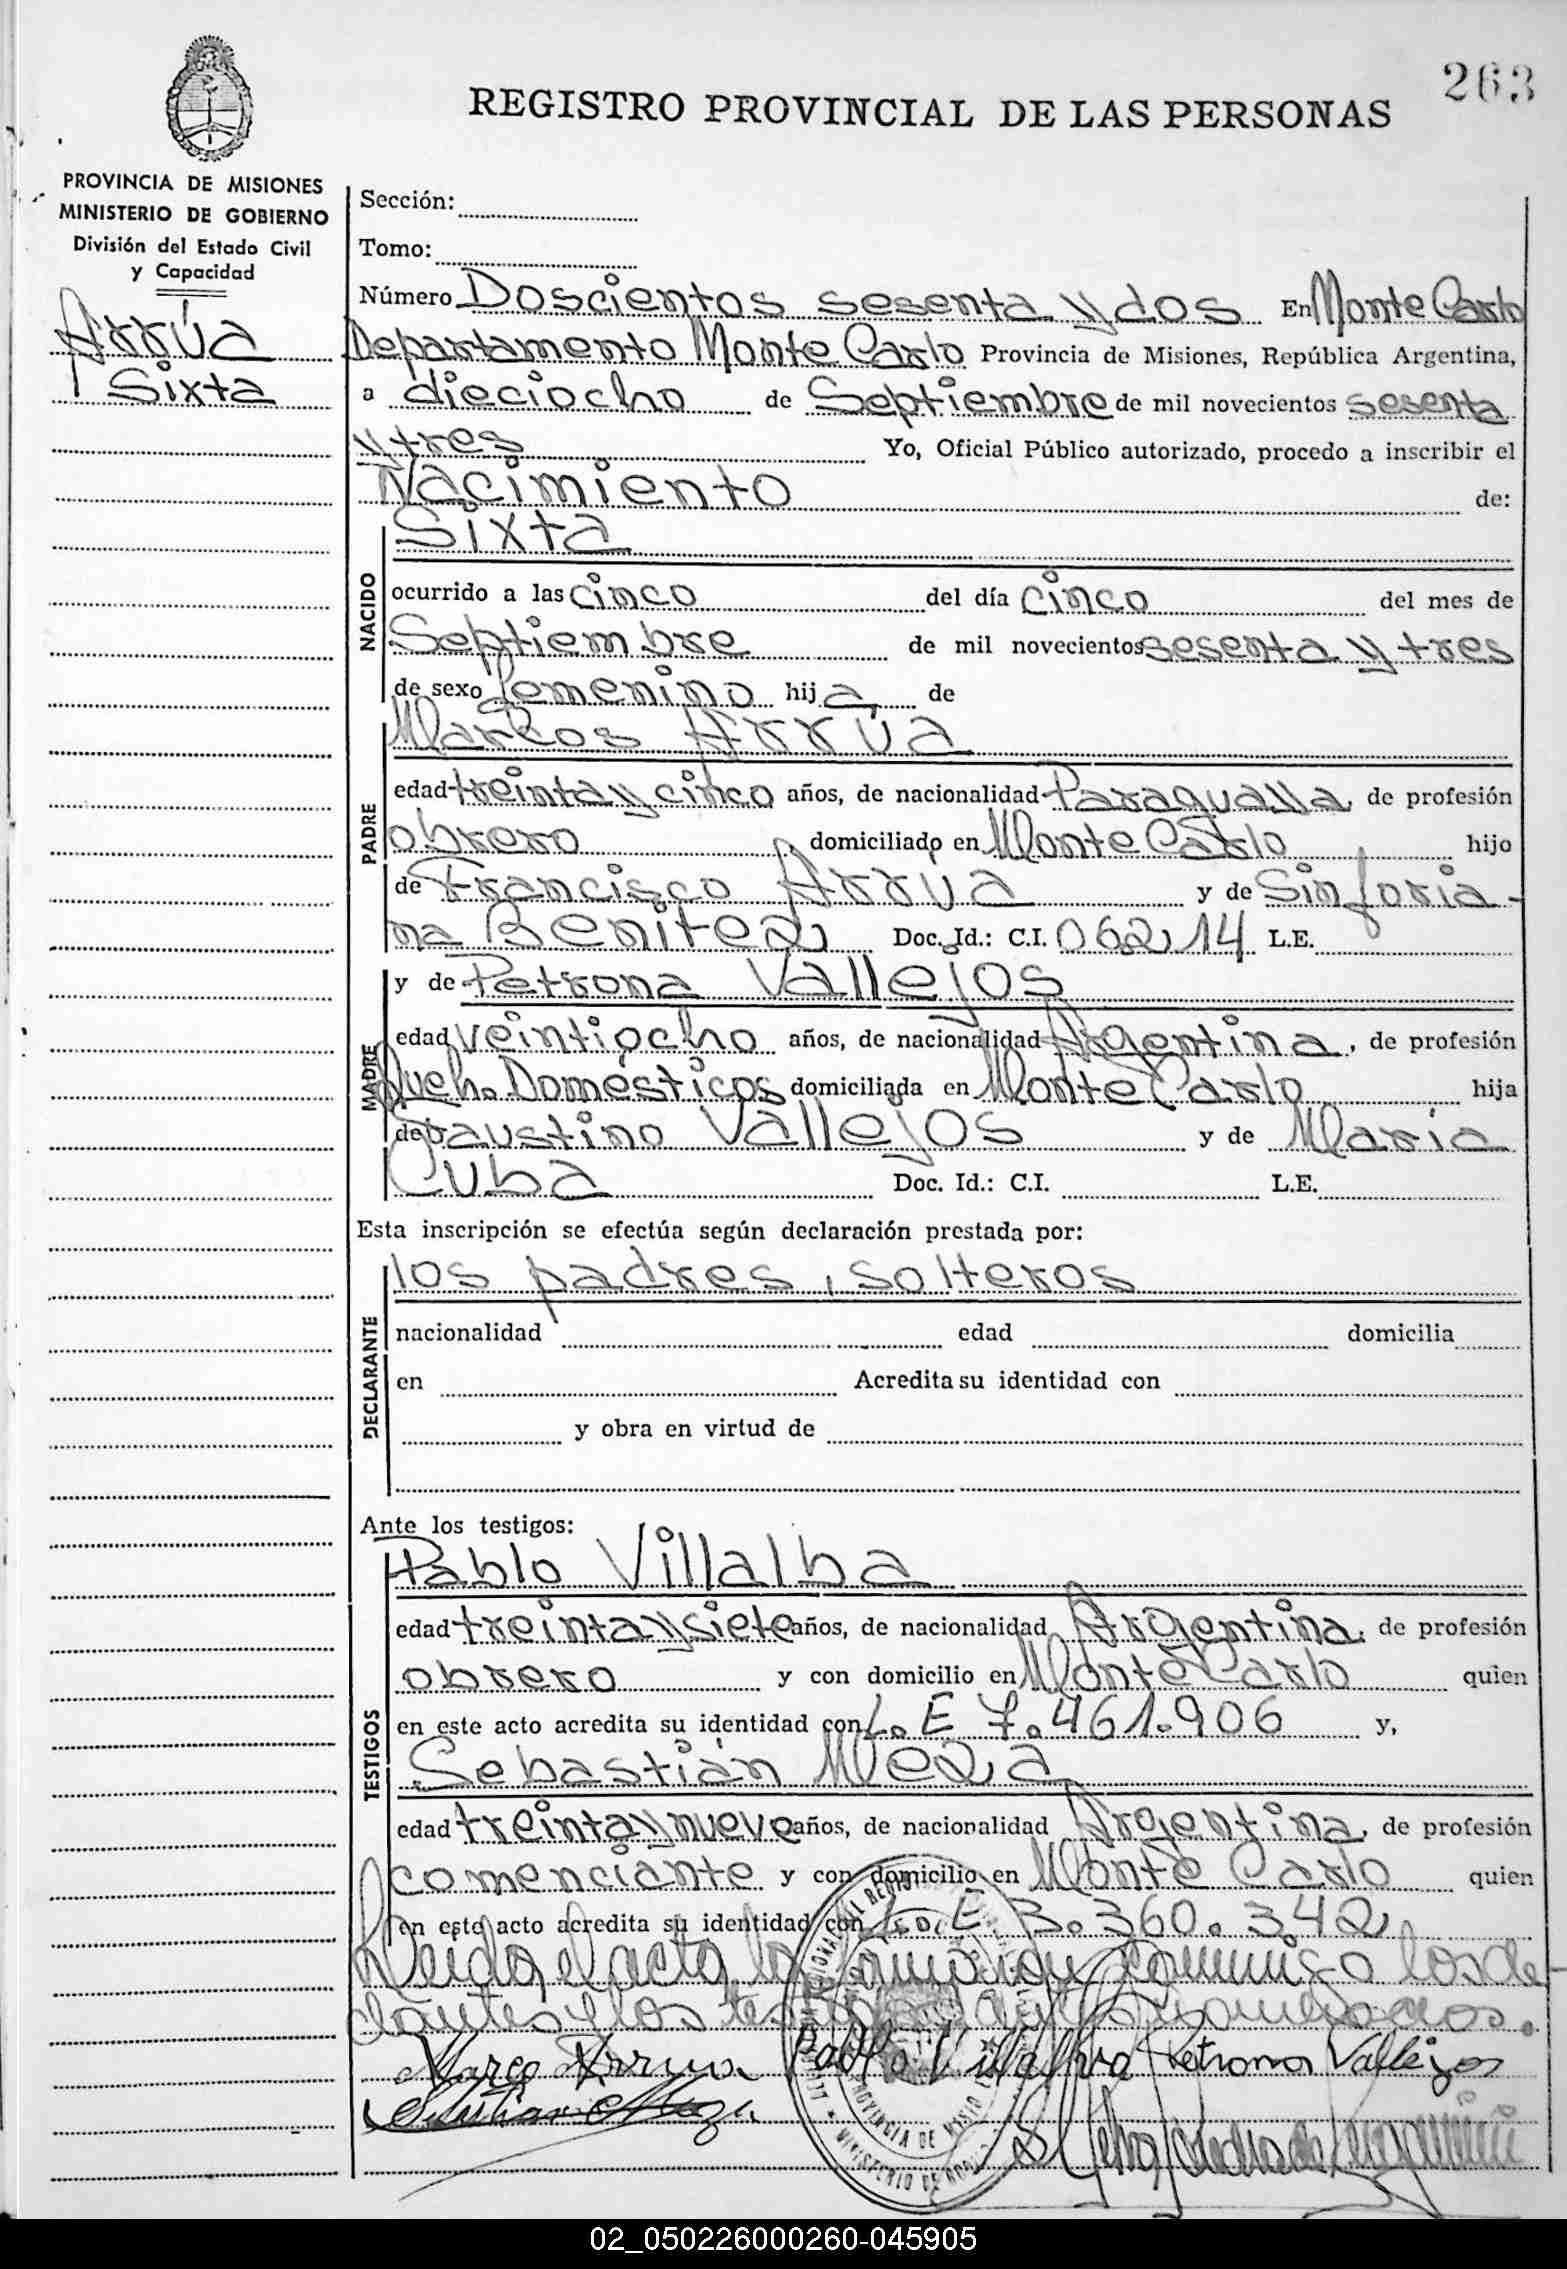 263
REGISTRO PROVINCIAL DE LAS PERSONAS
PROVINCIA DE MISIONES
MINISTERIO DE GOBIERNO
División del Estado Civil
y Capacidad
Arrúa
Sixta
Sección:
Tomo:
Número Doscientos sesenta y dos En Monte Carlo
Departamento Monte Carlo Provincia de Misiones, República Argentina,
a dieciocho de Septiembre de mil novecientos sesenta
y tres Yo, Oficial Público autorizado, procedo a inscribir el
Nacimiento de:
NACIDO
Sixta
ocurrido a las cinco del día cinco del mes de
Septiembre de mil novecientos sesenta y tres
de sexo femenino hija de
PADRE
Marcos Arrúa
edad treinta y cinco años, de nacionalidad Paraguaya, de profesión
obrero domiciliado en Monte Carlo hijo
de Francisco Arrúa y de Sinforia-
na Benitez Doc. Id.: C.I. 062214 L.E.
MADRE
y de Petrona Vallejos
edad veintiocho años, de nacionalidad Argentina, de profesión
Queh. Domésticos domiciliada en Monte Carlo hija
de Faustino Vallejos y de Maria
Cuba Doc. Id.: C.I. L.E.
Esta inscripción se efectúa según declaración prestada por:
DECLARANTE
los padres, solteros
nacionalidad edad domicilia
en Acredita su identidad con
y obra en virtud de
Ante los testigos:
TESTIGOS
Pablo Villalba
edad treinta y siete años, de nacionalidad Argentina, de profesión
obrero y con domicilio en Monte Carlo quien
en este acto acredita su identidad con L.E 7.461.906 y,
Sebastián Meza
edad treinta y nueve años, de nacionalidad Argentina, de profesión
comenciante y con domicilio en Monte Carlo quien
en este acto acredita su identidad con L.E 3.360.342
Leida el acta la conmigo los de-
clantes y los
Marco Arrua Pablo Villalva Petrona Vallejos
PROVINCIA DE MISIONES
MINISTERIO DE
02_050226000260-045905